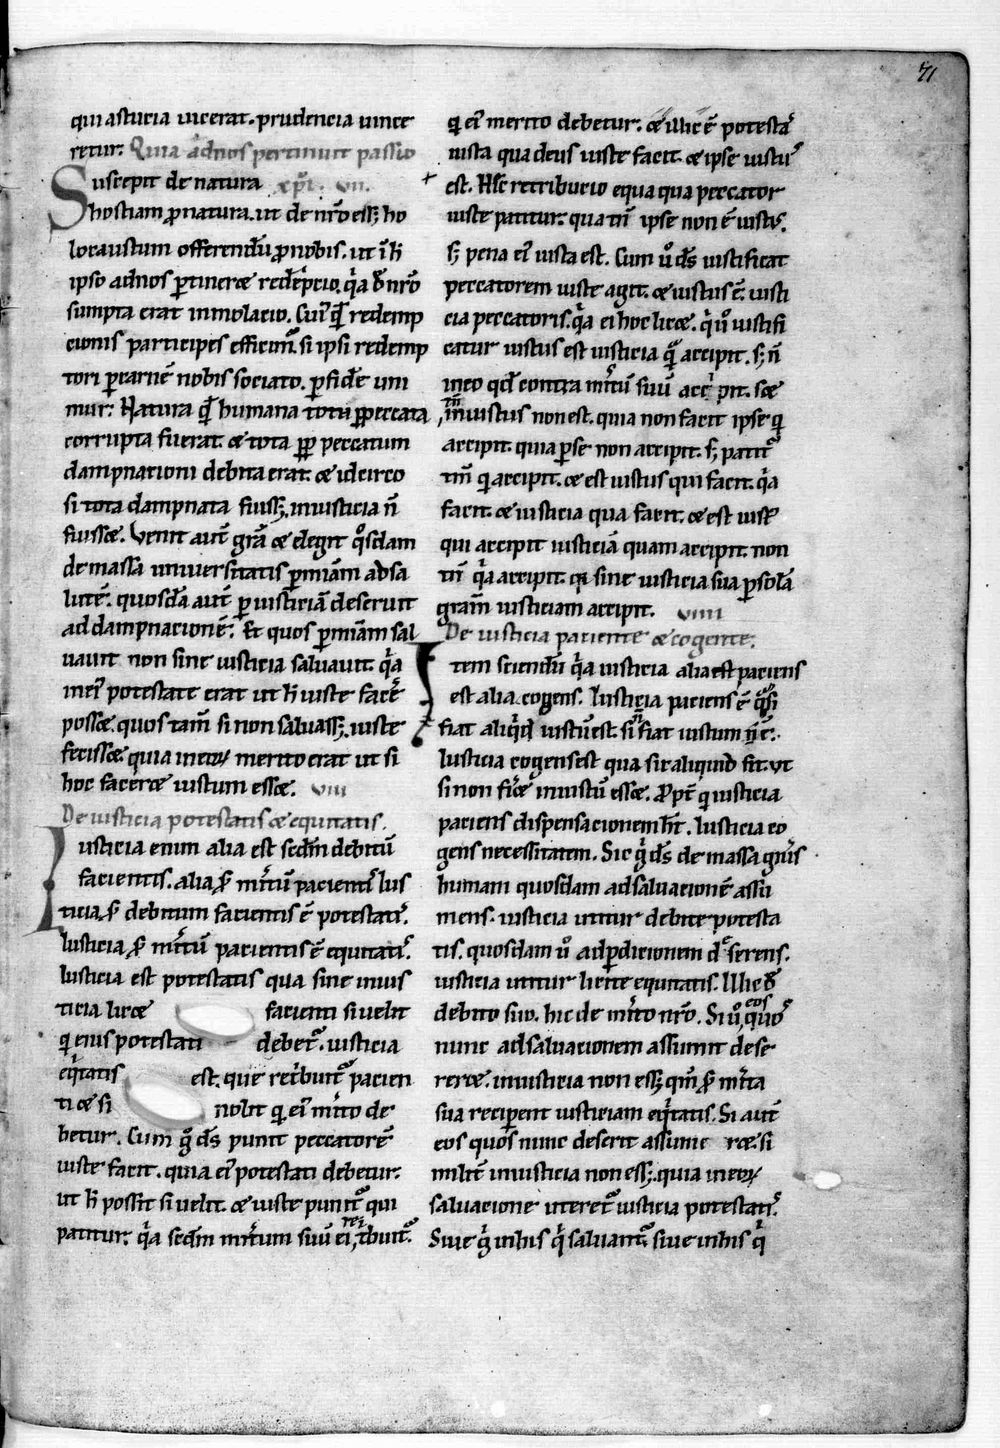 71
qui astucia uicerat. prudencia uince
retur. Quia ad nos pertinuit passio
Suscepit de natura xp̄i. vii.
hostiam ꝓ natura. ut de nr̄o ess&; ho
locaustum offerendū ꝓ nobis. ut ī h̄
ipso ad nos ꝑtineret redēpcio. q̄a d̄ nr̄o
sumpta erat inmolacio. Cui᷒ qͥdē redemp
cionis participes efficim᷒. si ipsi redemp
tori ꝑ carnē nobis sociato. ꝑ fidē uni
mur. Natura qͥdē humana tota ꝓp̄ peccata
corrupta fuerat. et tota ꝓp̄ peccatum
dampnationi debita erat. et idcirco
si tota dampnata fuiss&. iniusticia n̄
fuisset. Venit aut̄ gr̄a et elegit q᷒sdam
de massa uniuersitatis ꝑ mīam ad sa
lutē. quosdā aut̄ ꝑ iusticiā deseruit
ad dampnacionē. Et quos ꝑ mīam sal
uauit non sine iusticia saluauit. q̄a
in ei᷒ potestate erat ut h̄ iuste facēr
posset. quos tam̄ si non saluass&. iuste
fecisset. quia in eoꝝ merito erat ut si
hoc faceret iustum esset. viii
De iusticia potestatis et equitatis.
Iusticia enim alia est sedm̄ debitū
facientis. alia s̄ m̄itū pacient᷒ Ius
ticia s̄ debitum facientis ē potestat᷒.
Iusticia s̄ m̄itū pacientis ē equitat᷒.
Iusticia est potestatis qua sine inius
ticia licet facienti si uelit
q̄ eius potestati debet᷒. iusticia
eq̄tatis est. que ret̄buit᷒ pacien
ti et si nolit q̄ ei᷒ m̄ito de
betur. Cum g̊ ds̄ punit peccatorē
iuste facit. quia ei᷒ potestati debetur.
ut h̄ possit si uelit. et iuste punit᷒ qui
patitur. q̄a sedm̄ m̄itum suū ei ret̄buit᷒.
q̄ ei᷒ merito debetur. et illic ē potesta᷒
iusta qua deus iuste facit. et ipse iustu᷒
est. Hec retribucio equa qua peccator
iuste patitur. qua tn̄ ipse non ē iustus.
s; pena ei᷒ iusta est. Cum ů ds̄ iustificat
peccatorem iuste agit. et iustus ē. iusti
cia peccatoris. q̄a ei hoc licet. q̄ ů iustifi
catur iustus est iusticia quā accipit. s; n̄
in eo qd̄ contra m̄itū suū accipit. set
tn̄ iniustus non est. quia non facit ipse q̄
accipit. quia ꝑ se non accipit. s; patit᷒
tm̄ q̄ accipit. et est iustus qui facit. q̄a
facit. et iusticia qua facit. et est iust᷒
qui accipit iusticiā quam accipit. non
tn̄ q̄a accipit. qͥ sine iusticia sua ꝑ solā
gram̄ iusticiam accipit. viiii
De iusticia paciente et cogente.
Item sciendū q̄a iusticia alia est paciens
est alia cogens. Iusticia paciens ē q̄ si
fiat aliq̄d iustū est. si n̄ fiat iustum n̄ ē.
Iusticia cogens est qua sic aliquid fit. ut
si non fieret iniustū esset. Ꝓpt̄ q̄ iusticia
paciens dispensacionem ht̄. Iusticia co
gens necessitatem. Sic g̊ ds̄ de massa gn̄is
humani quosdam ad saluacionē assu
mens. iusticia utitur debite potesta
tis. quosdam ů ad ꝑdicionem deserens.
iusticia utitur licite equitatis. Illic d̄
debito suo. hic de m̄ito nr̄o. Si ů eos quo᷒
nunc ad saluacionem assumit dese
reret. iniusticia non ess&. qm̄ s̄ m̄ita
sua reciperent iusticiam eq̄tatis. Si aut̄
eos quos nunc deserit assume ret. si
milit̄ iniusticia non ess&. quia in eoꝝ
saluacione uteret᷒ iusticia potestat᷒.
Siue g̊ in his q̄ saluant᷒. siue in his q̄